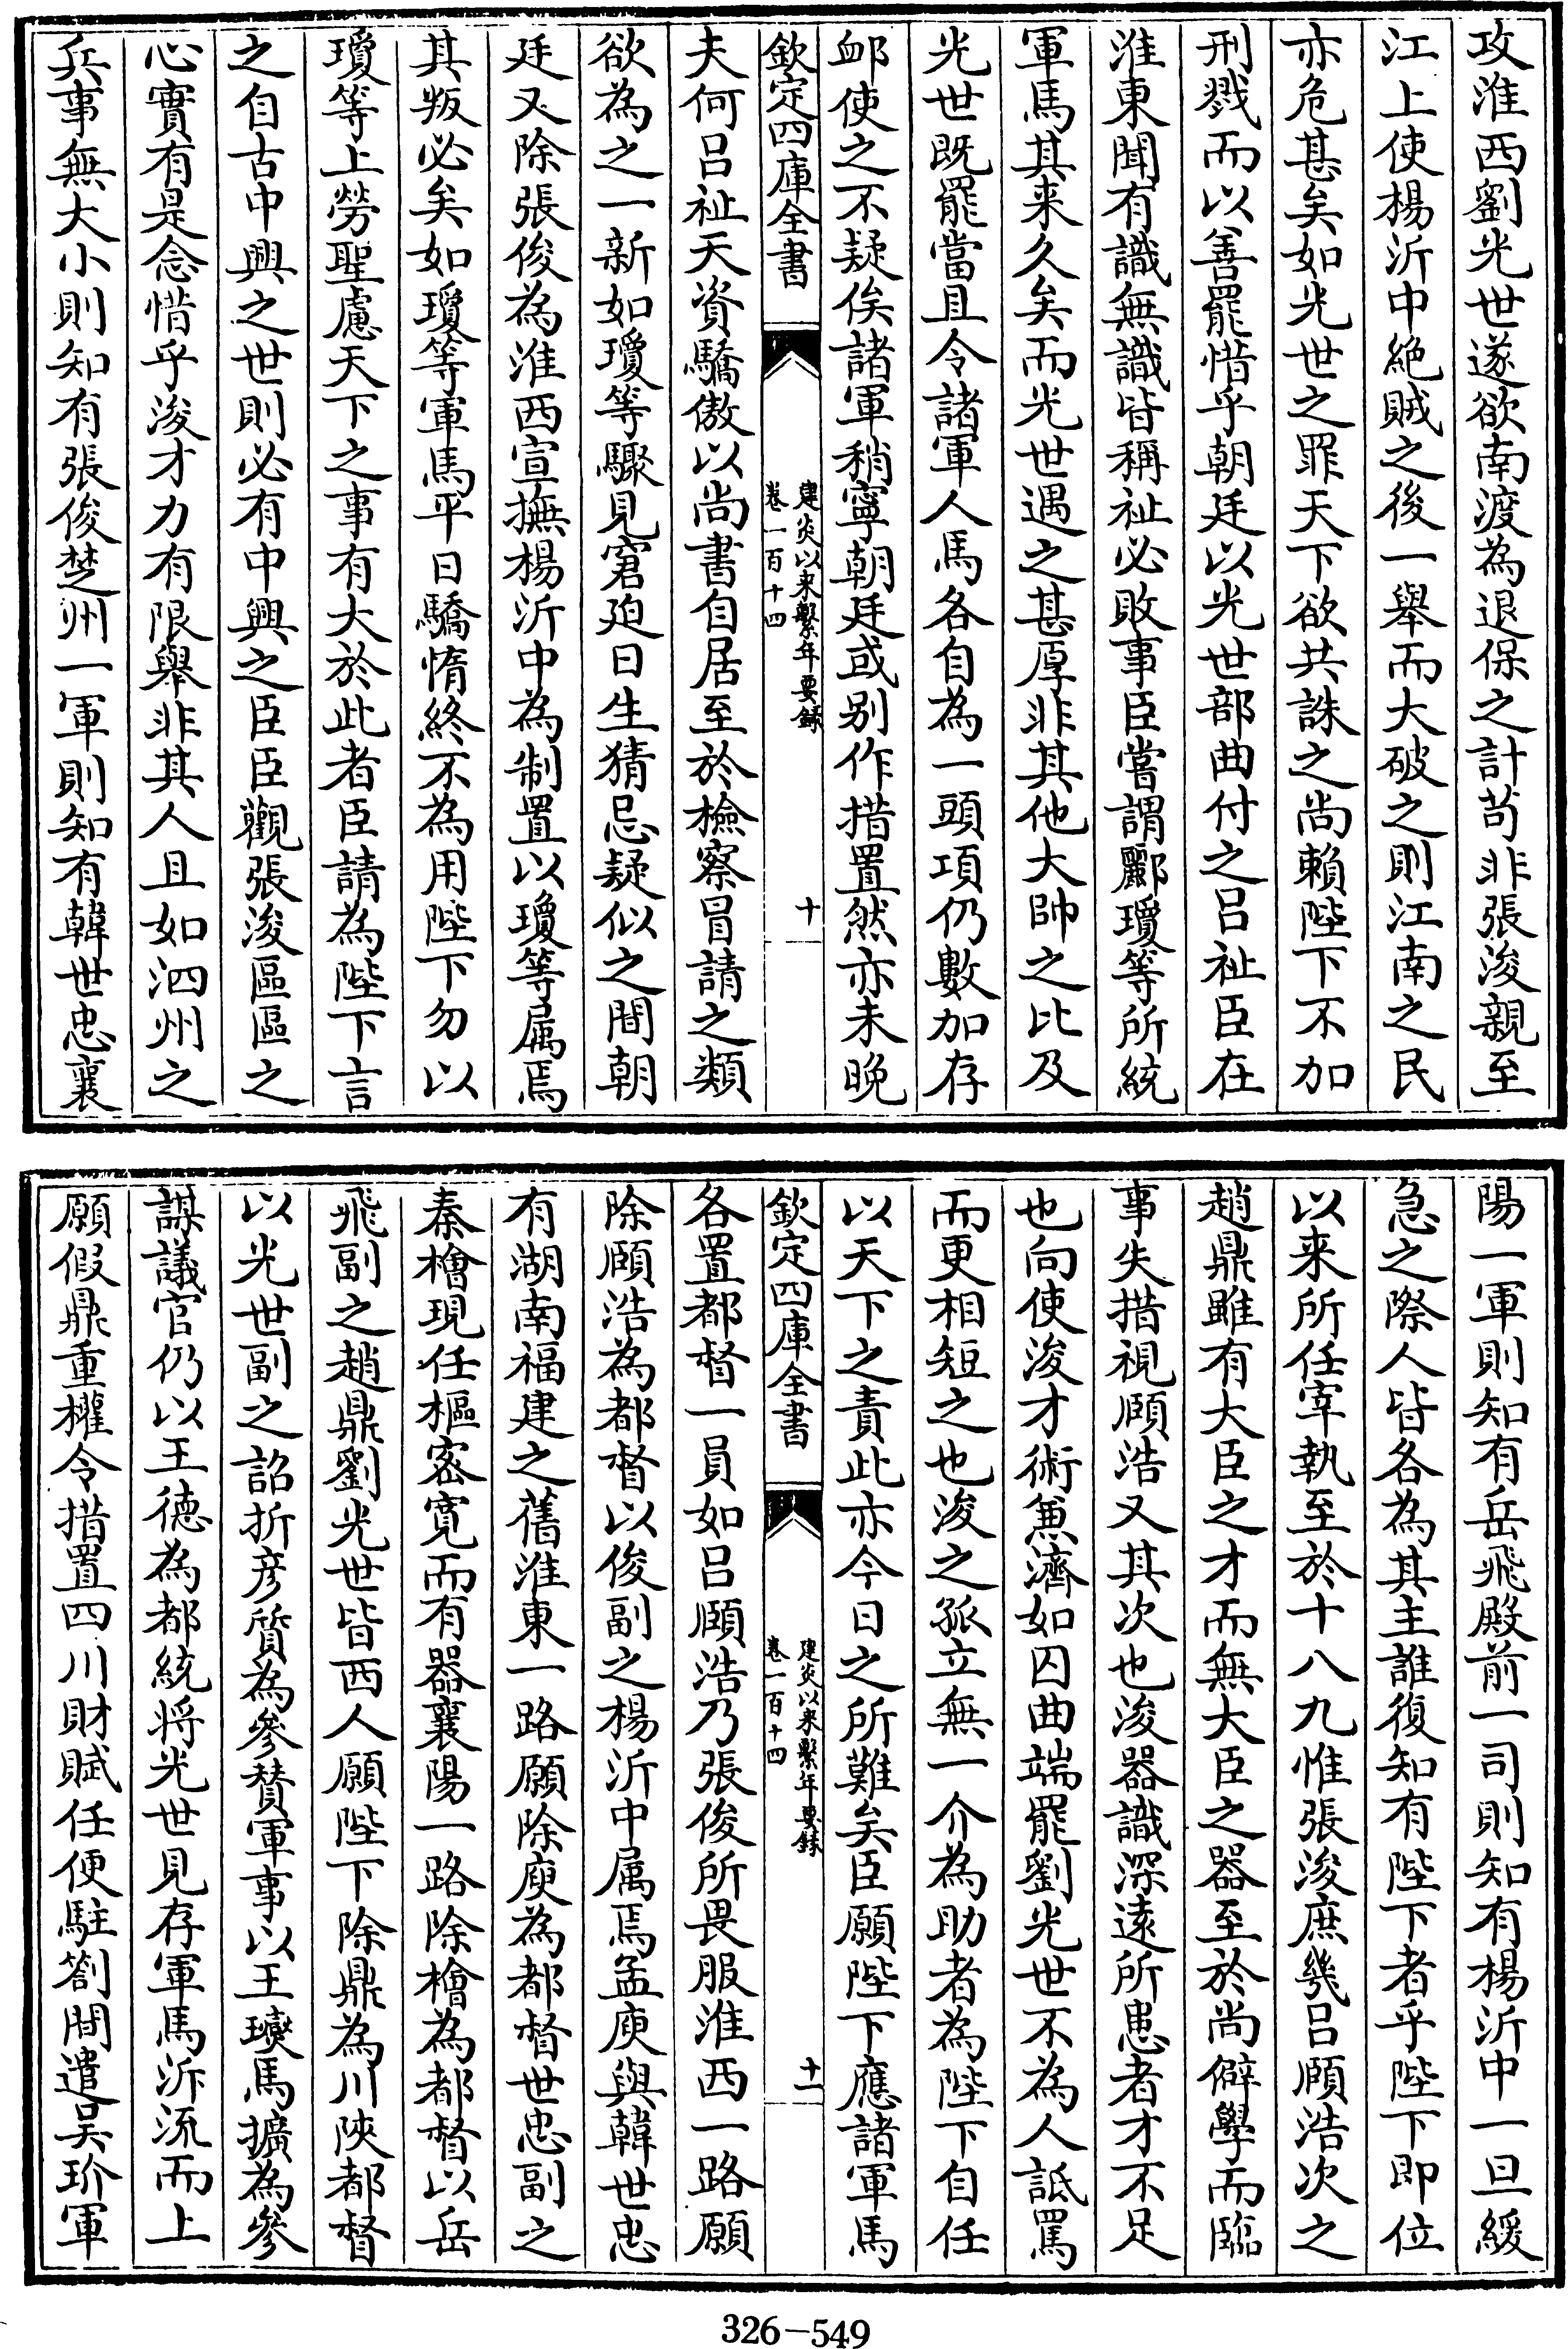 攻淮西劉光世遂欲南渡為退保之計苟非張浚親至
江上使楊沂中絶賊之後一舉而大破之則江南之民
亦危甚矣如光世之罪天下欲共誅之尚賴陛下不加
刑戮而以善罷惜乎朝廷以光世部曲付之吕祉臣在
淮東聞有識無識皆稱祉必敗事臣嘗謂酈瓊等所統
軍馬其来久矣而光世遇之甚厚非其他大帥之比及
光世既罷當且令諸軍人馬各自為一頭項仍數加存
䘏使之不疑俟諸軍稍寧朝廷或别作措置然亦未晚
欽定四庫全書
建炎以来繫年要録
卷一百十四
十
夫何吕祉天資驕傲以尚書自居至於檢察冒請之類
欲為之一新如瓊等驟見窘廹日生猜忌疑似之間朝
廷又除張俊為淮西宣撫楊沂中為制置以瓊等属焉
其叛必矣如瓊等軍馬平日驕惰終不為用陛下勿以
瓊等上勞聖慮天下之事有大於此者臣請為陛下言
之自古中興之世則必有中興之臣臣觀張浚區區之
心實有是念惜乎浚才力有限舉非其人且如泗州之
兵事無大小則知有張俊楚州一軍則知有韓世忠襄
陽一軍則知有岳飛殿前一司則知有楊沂中一旦緩
急之際人皆各為其主誰復知有陛下者乎陛下即位
以来所任宰執至於十八九惟張浚庶幾吕頤浩次之
趙鼎雖有大臣之才而無大臣之器至於尚僻學而臨
事失措視頤浩又其次也浚器識深逺所患者才不足
也向使浚才術兼濟如囚曲端罷劉光世不為人詆罵
而更相短之也浚之孤立無一介為助者為陛下自任
以天下之責此亦今日之所難矣臣願陛下應諸軍馬
欽定四庫全書
建炎以来繫年要録
卷一百十四
十一
各置都督一員如吕頤浩乃張俊所畏服淮西一路願
除頤浩為都督以俊副之楊沂中属焉孟庾與韓世忠
有湖南福建之舊淮東一路願除庾為都督世忠副之
秦檜現任樞密寛而有器襄陽一路除檜為都督以岳
飛副之趙鼎劉光世皆西人願陛下除鼎為川陜都督
以光世副之詔折彦質為參贊軍事以王𤫉馬擴為參
謀議官仍以王德為都統将光世見存軍馬泝流而上
願假鼎重權令措置四川財賦任便駐劄間遣吴玠軍
326-549